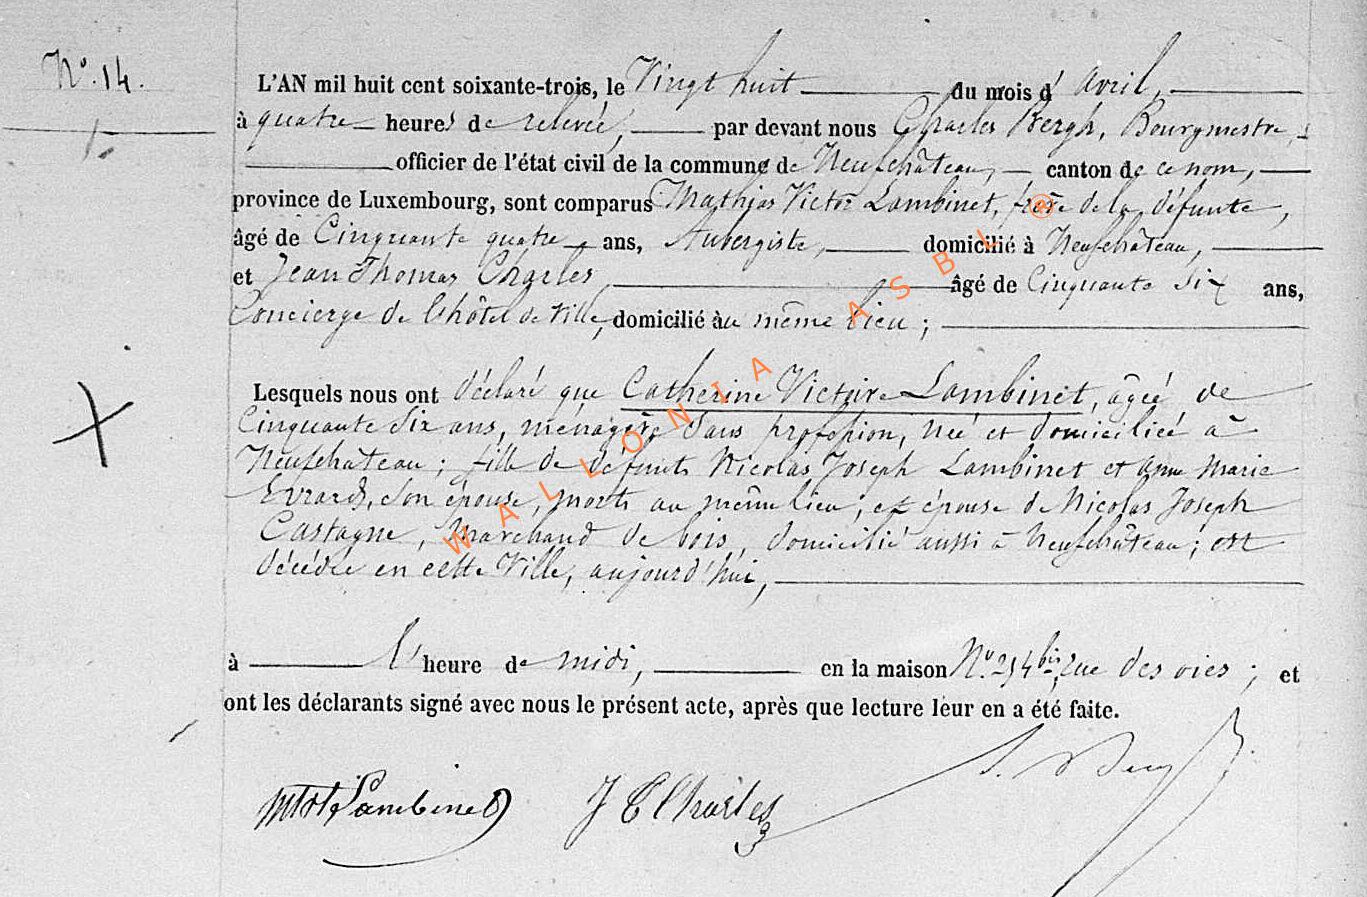 N°. 14.
L'AN mil huit cent soixante-trois, le Vingt huit du mois d'avril,
à quatre heures de relevée, par devant nous Charles Bergh, Bourgmestre,
officier de l'état civil de la commune de Neufchâteau, canton de ce nom,
province de Luxembourg, sont comparus Mathias Victor Lambinet, frère de la défunte,
âgé de Cinquante quatre ans, Aubergiste, domicilié à Neufchâteau,
et Jean Thomas Charles, âgé de Cinquante six ans,
Concierge de l'hôtel de Ville, domicilié au même lieu ;
Lesquels nous ont déclaré que Catherine Victoire Lambinet, âgée de
Cinquante Six ans, ménagère Sans profession, née et domiciliée à
Neufchateau ; fille de défunts Nicolas Joseph Lambinet et Anne Marie
Evrard, son épouse, morts au même lieu, et épouse de Nicolas Joseph
Castagne, Marchand de bois, domicilié aussi à Neufchâteau ; est
décédée en cette Ville, aujourd'hui,
à l'heure de midi, en la maison N°. 254 bis, rue des oies ; et
ont les déclarants signé avec nous le présent acte, après que lecture leur en a été faite.
Lambinet J T Charles
WALLONIA ASBL ®